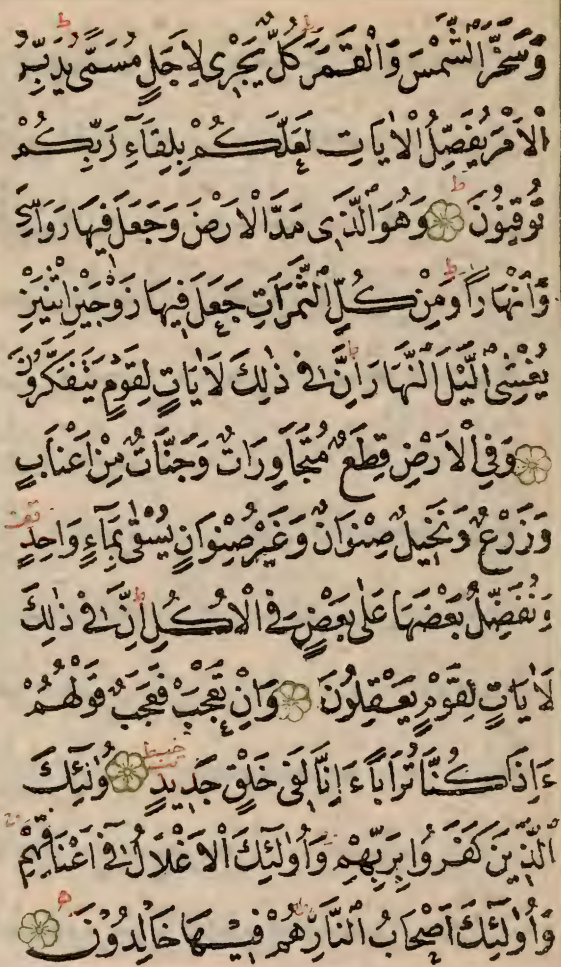 وَسَخَّرَ الشَّمْسَ وَالْقَمَرَ كُلٌّ يَجْرِى لِاَجَلٍ مُسَمًّى يُدَبِّرُ
الْاَمْرَ يُفَصِّلُ الْاٰيَاتِ لَعَلَّكُمْ بِلِقَآءِ رَبِّكُمْ
تُوقِنُونَ وَهُوَ الَّذِى مَدَّ الْاَرْضَ وَجَعَلَ فِيهَا رَوَاسِىَ
وَاَنْهَارًا وَمِنْ كُلِّ الثَّمَرَاتِ جَعَلَ فِيهَا زَوْجَيْنِ اثْنَيْنِ
يُغْشِى الَّيْلَ النَّهَارَ اِنَّ فِى ذٰلِكَ لَاٰيَاتٍ لِقَوْمٍ يَتَفَكَّرُونَ
وَفِى الْاَرْضِ قِطَعٌ مُتَجَاوِرَاتٌ وَجَنَّاتٌ مِنْ اَعْنَابٍ
وَزَرْعٌ وَنَخِيلٌ صِنْوَانٌ وَغَيْرُ صِنْوَانٍ يُسْقٰى بِمَآءٍ وَاحِدٍ
وَنُفَضِّلُ بَعْضَهَا عَلٰى بَعْضٍ فِى الْاُكُلِ اِنَّ فِى ذٰلِكَ
لَاٰيَاتٍ لِقَوْمٍ يَعْقِلُونَ وَاِنْ تَعْجَبْ فَعَجَبٌ قَوْلُهُمْ
ءَاِذَا كُنَّا تُرَابًا ءَاِنَّا لَفِى خَلْقٍ جَدِيدٍ اُولٰٓئِكَ
الَّذِينَ كَفَرُوا بِرَبِّهِمْ وَاُولٰٓئِكَ الْاَغْلَالُ فِى اَعْنَاقِهِمْ
وَاُولٰٓئِكَ اَصْحَابُ النَّارِ هُمْ فِيهَا خَالِدُونَ